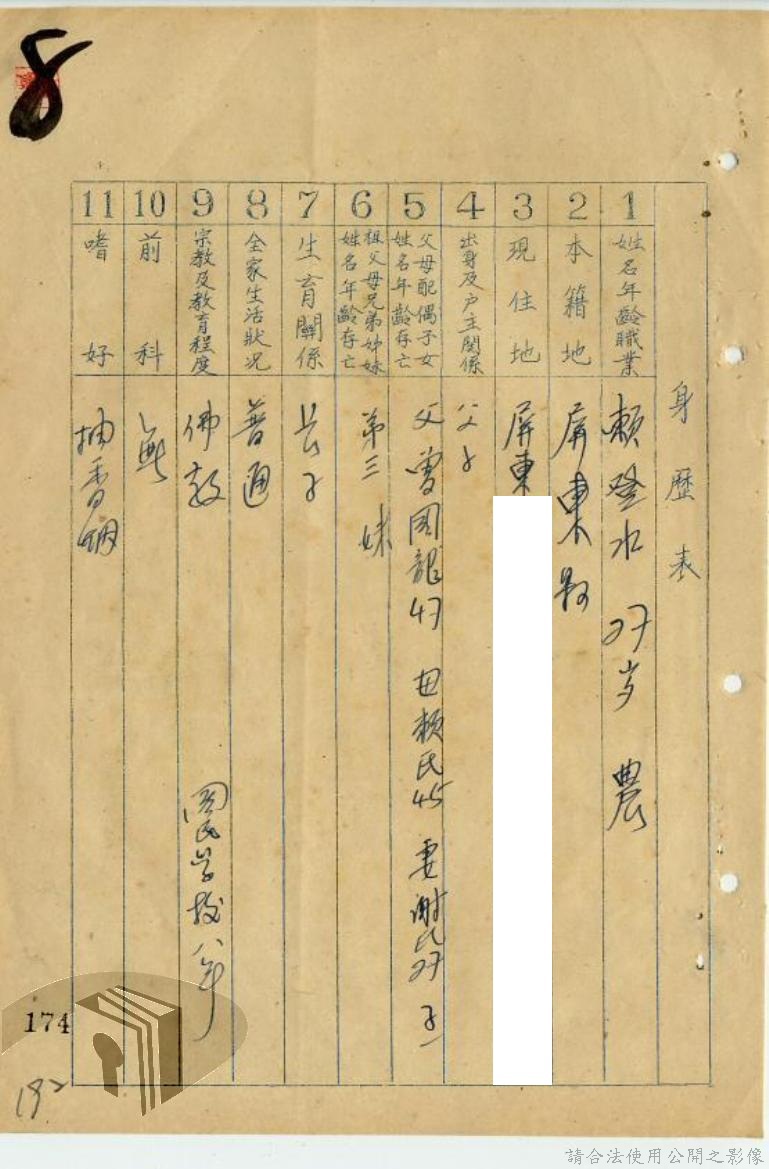 8
身歷表
1 姓名年齡職業 賴登水 27岁 農
2 本籍地 屏東縣
3 現住地 屏東
4 出身及戶主関係 父子
5 父母配偶子女姓名年齡存亡 父曾国龍47 母賴氏45 妻謝氏27 子一
6 祖父母兄弟姊妹姓名年齡存亡 第三 妹
7 生育關係 長子
8 全家生活狀況 普通
9 宗教及教育程度 佛教 國民学校八年
10 前科 無
11 嗜好 抽香烟
174
192
請合法使用公開之影像